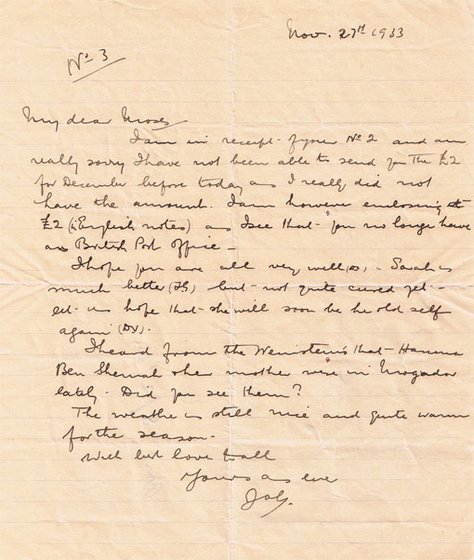 Nov. 27th 1933
No 3
My dear Moses
I am in receipt of yours No 2 and am
really sorry I have not been able to send you the £2
for December before today as I really did not
have the amount. I am however enclosing
£2 (English notes) as I see that you no longer have
a British Post Office -
I hope you are all very well - Sarah is
much better but not quite cured yet -
let us hope that she will soon be he old self
again
I heard from the that
Ben & her mother were in Mogador
lately - Did you see them?
The weathe is still nice and quite warm
for the season -
With best love to all
Yours as ever